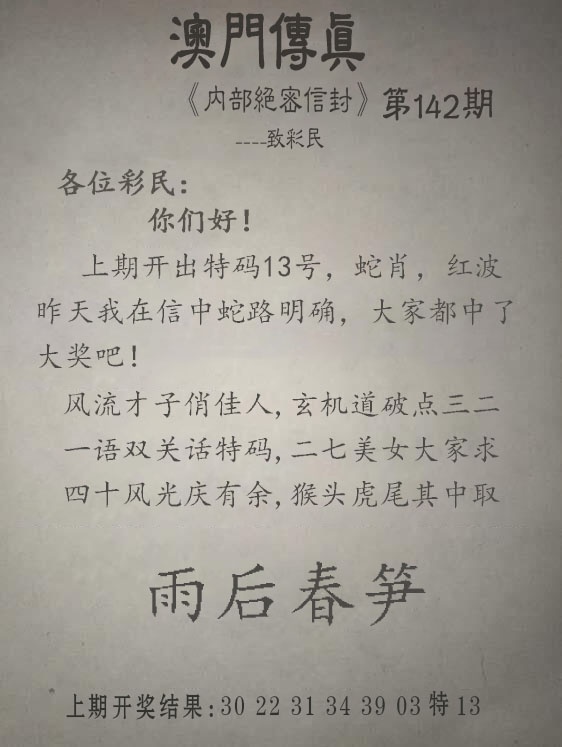 澳門傳眞
《内部絕密信封》第142期
----致彩民
各位彩民：
你们好！
上期开出特码13号，蛇肖，红波
昨天我在信中蛇路明确，大家都中了
大奖吧！
风流才子俏佳人,玄机道破点三二
一语双关话特码,二七美女大家求
四十风光庆有余,猴头虎尾其中取
雨后春笋
上期开奖结果:30 22 31 34 39 03 特 13